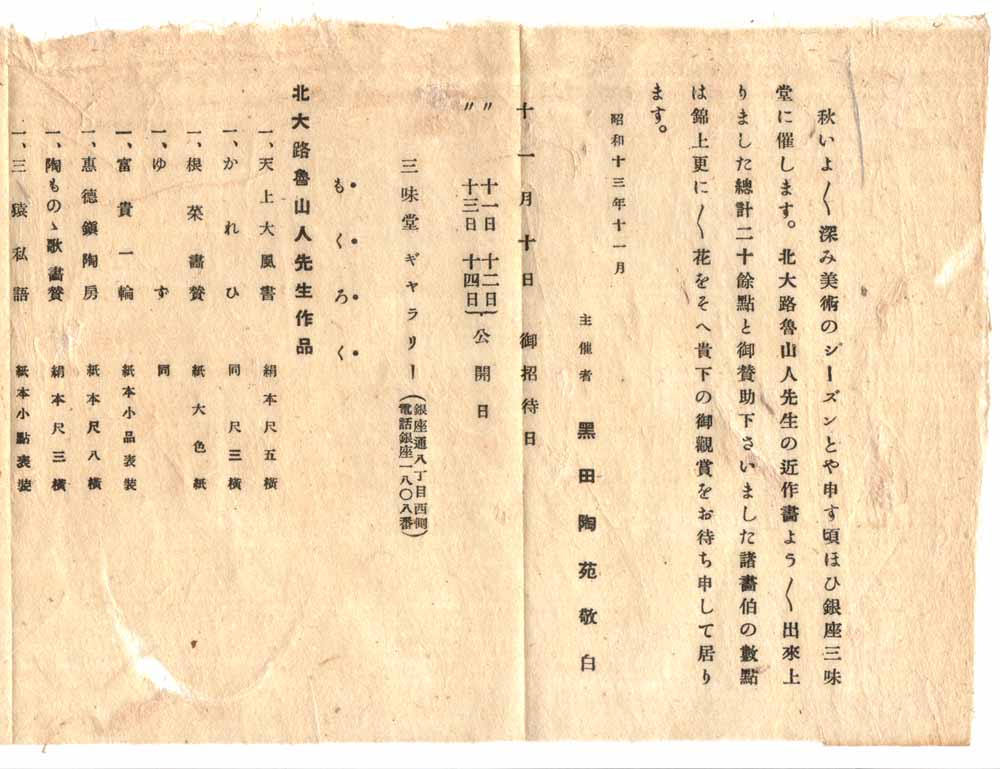 秋いよ〱深み美術のシーズンとや申す頃ほひ銀座三味
堂に催します。北大路魯山人先生の近作畵よう〱出來上
りました總計二十餘點と御賛助下さいました諸畵伯の數點
は錦上更に〱花をそへ貴下の御觀賞をお待ち申して居り
ます。
昭和十三年十一月
主催者 黑田陶苑敬白
十一月十日 御招待日
〃 十一日 十二日
〃 十三日 十四日 公開日
三味堂ギャラリー (銀座通八丁目西側
電話銀座一八〇八番)
もくろく
北大路魯山人先生作品
一、天上大風書 絹本尺五橫
一、かれひ 同 尺三橫
一、根菜畵賛 紙大色紙
一、ゆず 同
一、富貴一輪 紙本小品表裝
一、惠德鎭陶房 紙本尺八橫
一、陶ものゝ歌畵賛 絹本尺三橫
一、三猿私語 紙本小點表裝